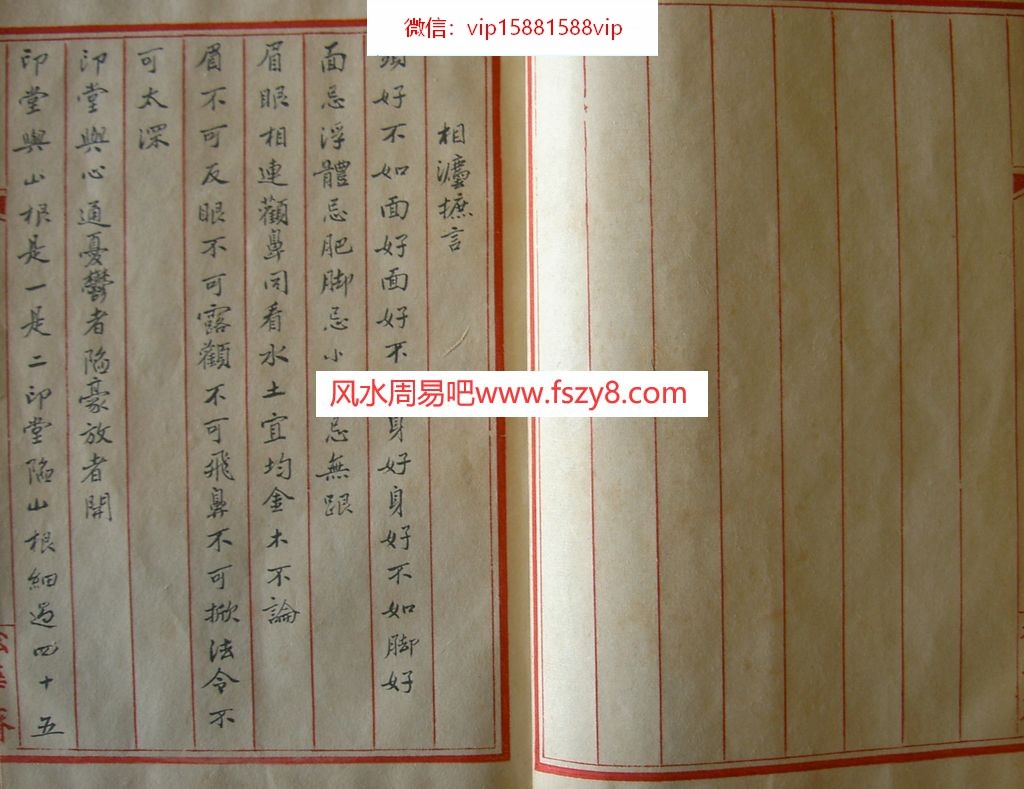 微信：vip15881588vip
相灋摭言
頭好不如面好面好不身好身好不如脚好
面忌浮體忌肥脚忌小忌無跟
眉眼相連顴鼻同看水土宜均金木不論
眉不可反眼不可露顴不可飛鼻不可掀法令不
可太深
印堂與心通憂鬱者陷豪放者開
印堂與山根是一是二印堂陷山根細過四十五
风水周易吧www.fszy8.com